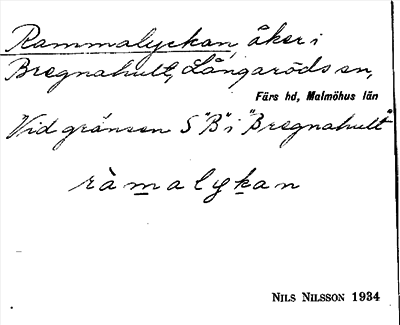 Rammalyckan, åker i
Bregnahult, Långaröds sn,
Färs hd, Malmöhus län
Vid gränsen S "B" i "Bregnahult"
ràmalykan
NILS NILSSON 1934